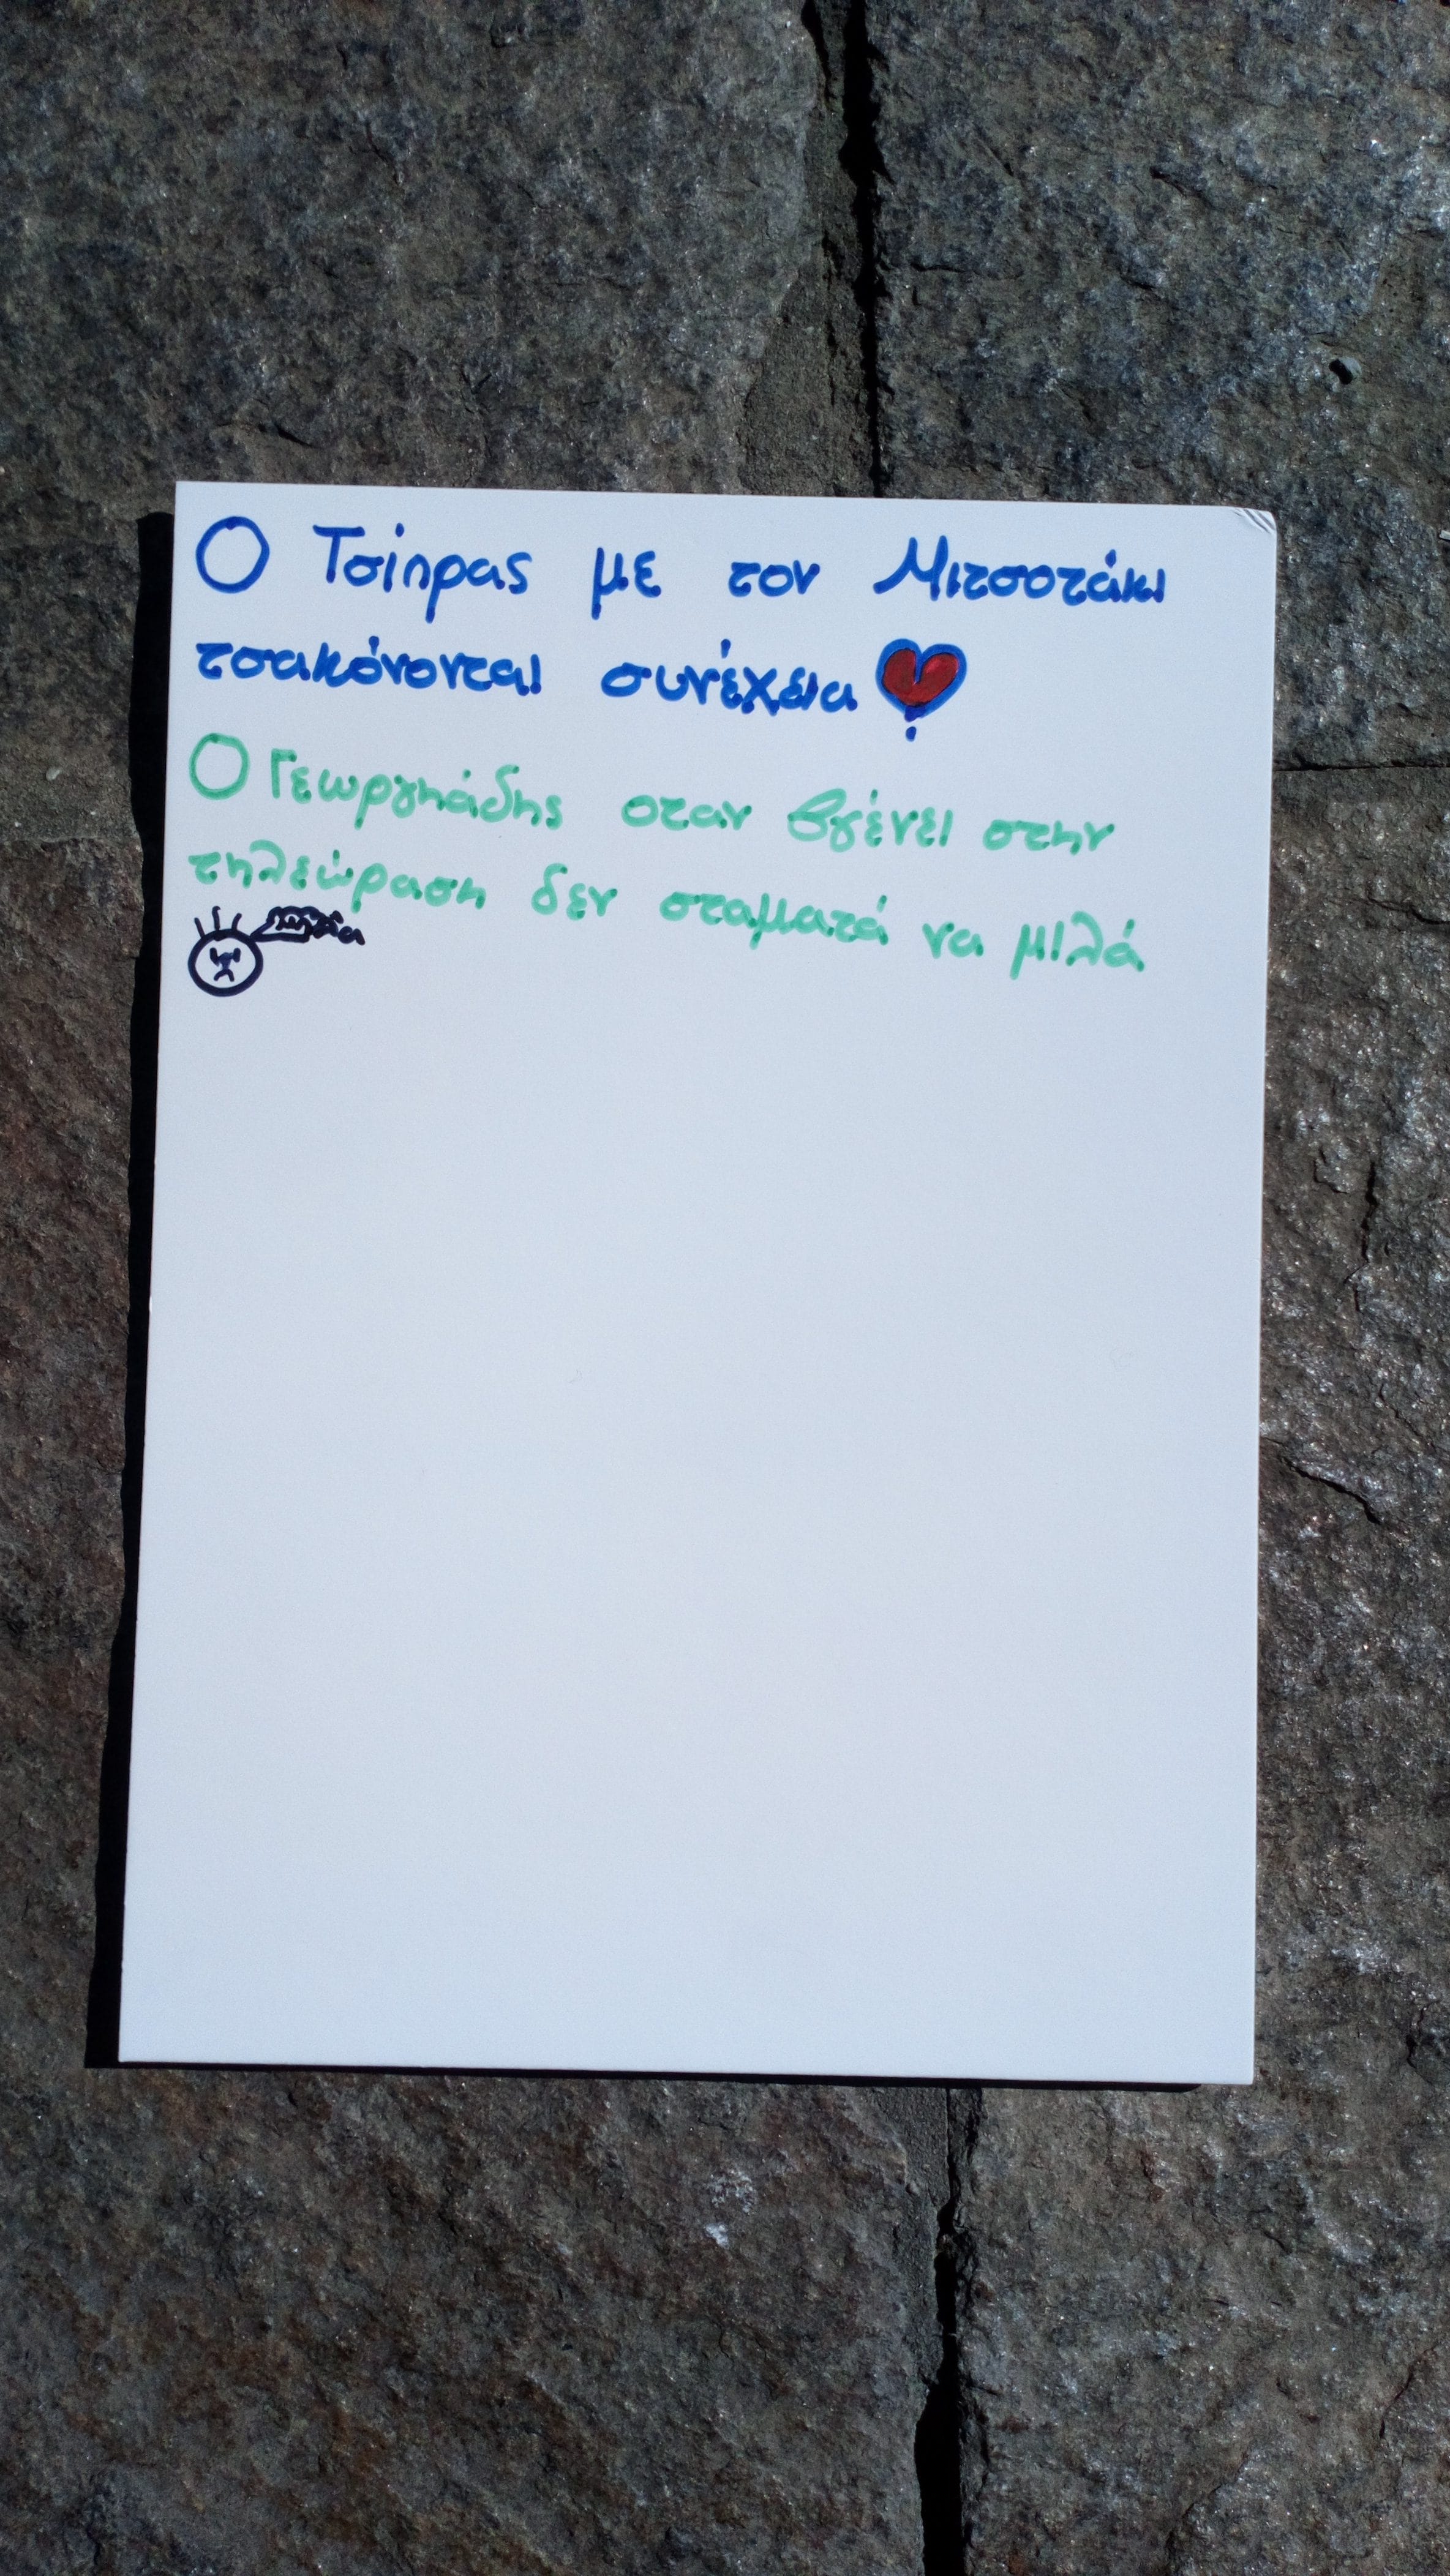 Ο Τσίπρας με τον Μιτσοτάκι
τσακόνονται συνέχεια
Ο Γεωργηάδης οταν βγένει στην
τηλεώραση δεν σταματά να μιλά